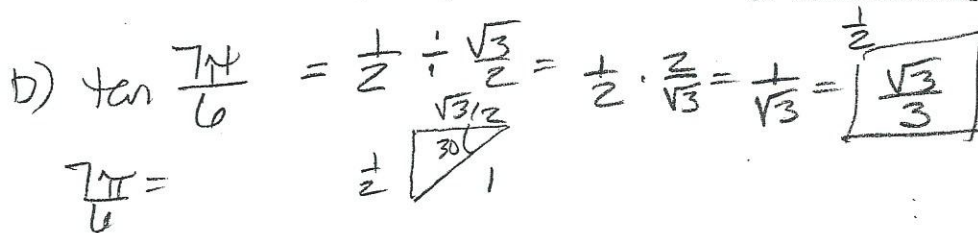 D) tan 7π/6 = 1/2 ÷ √3/2 = 1/2 · 2/√3 = 1/√3 = √3/3
1/2
√3/2
30
1/2
1
7π/6 =